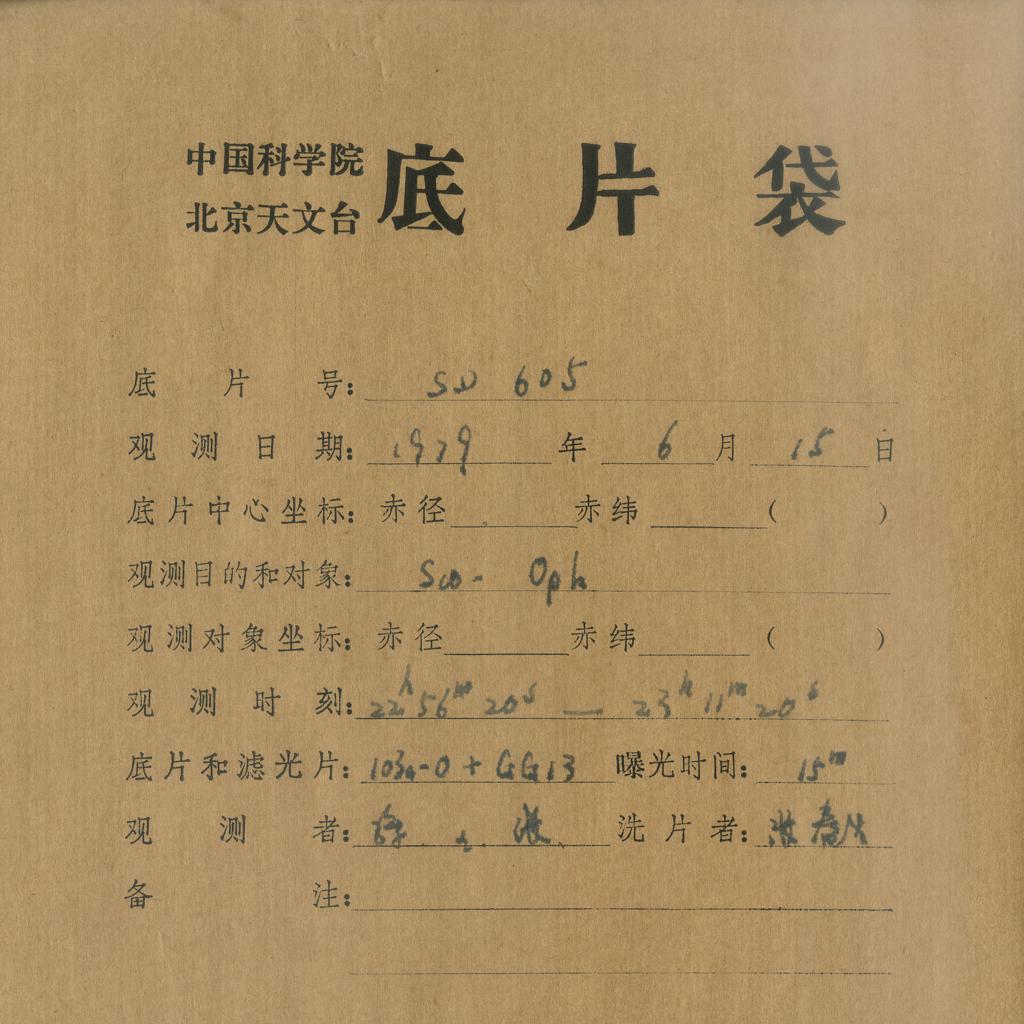 中国科学院
北京天文台
底片袋
底片号: 605
观测日期: 1979年 6月 15日
底片中心坐标: 赤径 赤纬 ( )
观测目的和对象: Sco - Oph
观测对象坐标: 赤径 赤纬 ( )
观测时刻: 22h 56m 20s — 23h 11m 20s
底片和滤光片: 103a-O + GG13 曝光时间: 15m
观测者: 洗片者:
备注: